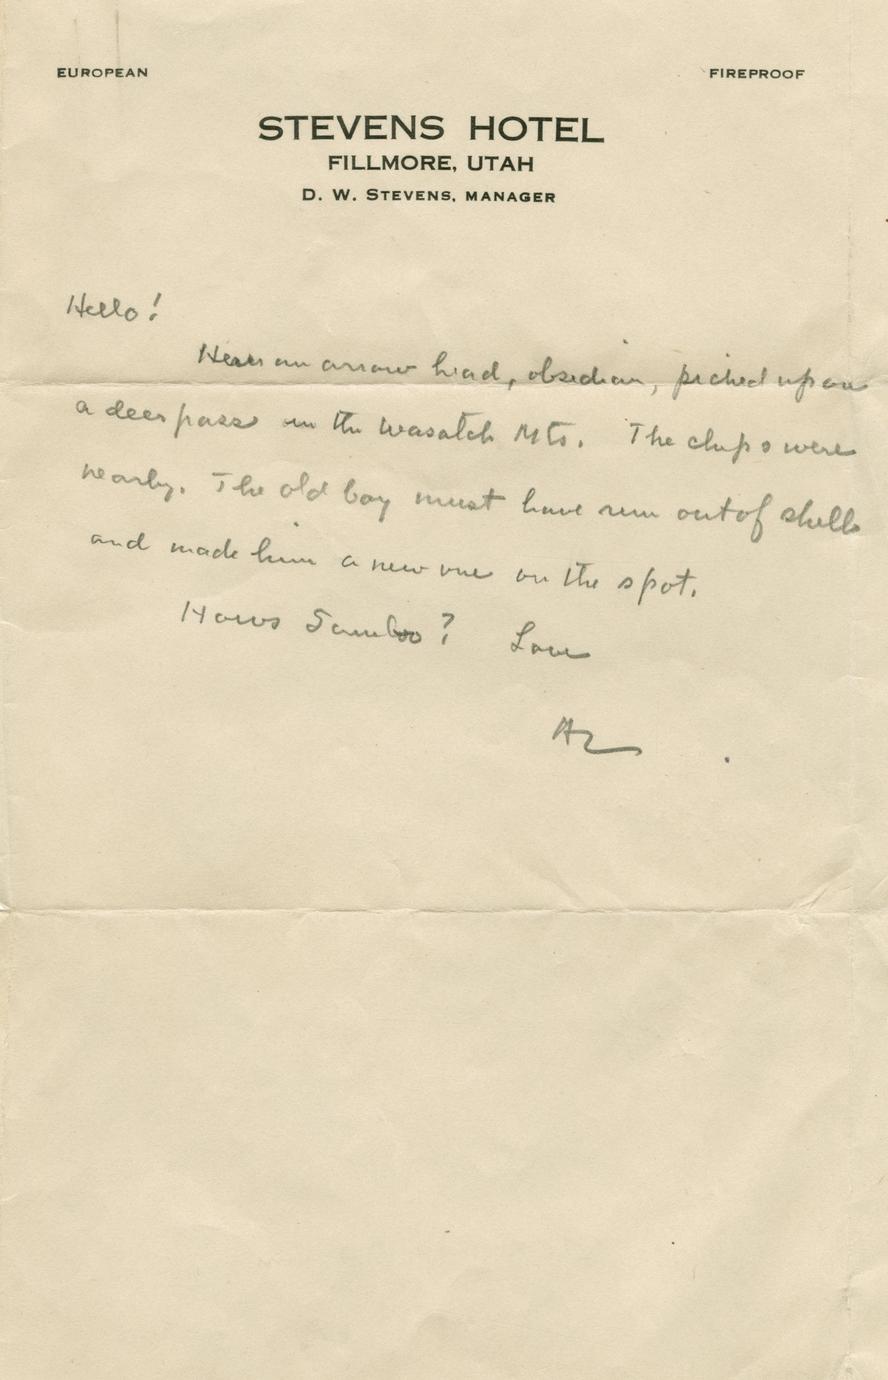 EUROPEAN FIREPROOF
STEVENS HOTEL
FILLMORE, UTAH
D. W. STEVENS, MANAGER
Hello!
Heres an arrow head, obsidian, picked up on
a deer pass in the Wasatch Mts. The chips were
nearby. The old boy must have run out of shells
and made him a new one on the spot.
Hows Sambo? Love